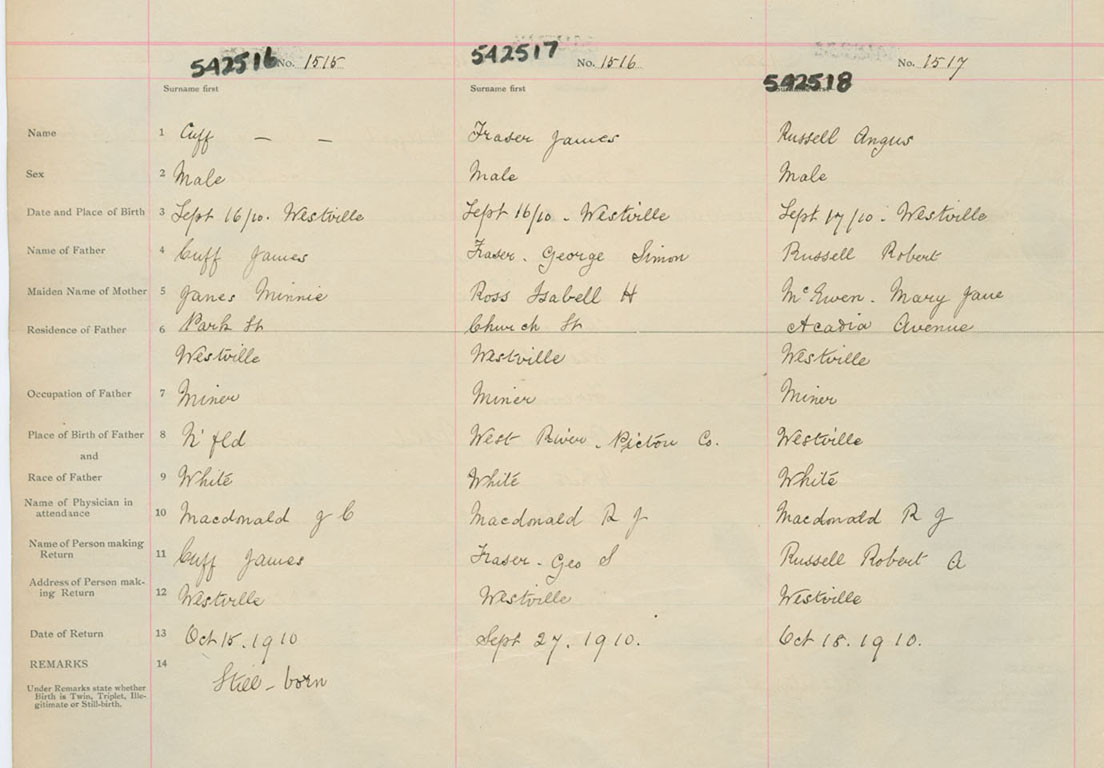 542516 No. 1515 542517 No. 1516 542518 No. 1517
Surname first Surname first Surname first
Name 1 Cuff — — Fraser James Russell Angus
Sex 2 Male Male Male
Date and Place of Birth 3 Sept 16/10. Westville Sept 16/10 - Westville Sept 17/10 - Westville
Name of Father 4 Cuff James Fraser - George Simon Russell Robert
Maiden Name of Mother 5 Janes Minnie Ross Isabell H McEwen - Mary Jane
Residence of Father 6 Park St Church St Acadia Avenue
Westville Westville Westville
Occupation of Father 7 Miner Miner Miner
Place of Birth of Father 8 N'fld West River - Pictou Co. Westville
and
Race of Father 9 White White White
Name of Physician in
attendance 10 Macdonald J C Macdonald R J Macdonald R J
Name of Person making
Return 11 Cuff James Fraser - Geo S Russell Robert A
Address of Person mak-
ing Return 12 Westville Westville Westville
Date of Return 13 Oct 15. 1910 Sept 27. 1910. Oct 18. 1910.
REMARKS 14
Still-born
Under Remarks state whether
Birth is Twin, Triplet, Ille-
gitimate or Still-birth.